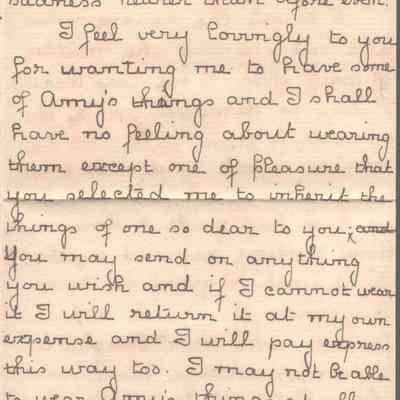 sadness nearer than before even.
I feel very lovingly to you
for wanting me to have some
of Amy's things and I shall
have no feeling about wearing
them except one of pleasure that
you selected me to inherit the
things of one so dear to you; and
You may send on anything
you wish and if I cannot wear
it I will return it at my own
expense and I will pay express
this way too. I may not be able
to wear Amy's things at all